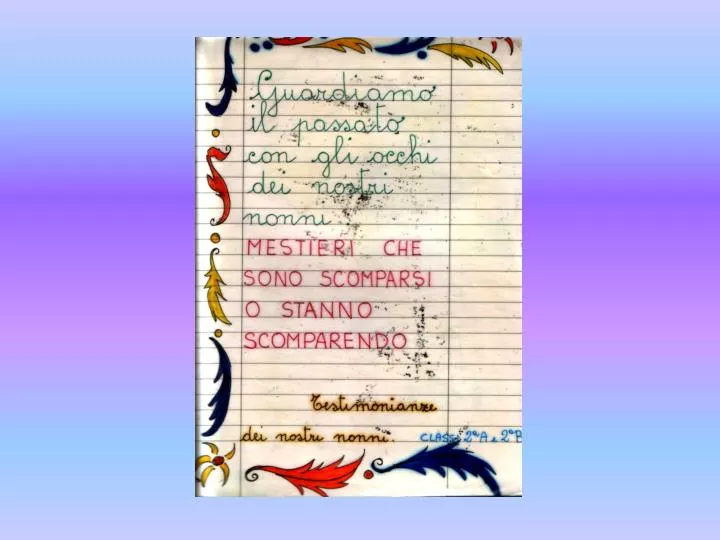 Guardiamo
il passato
con gli occhi
dei nostri
nonni
MESTIERI CHE
SONO SCOMPARSI
O STANNO
SCOMPARENDO
Testimonianze
dei nostri nonni. CLASSI 2ªA e 2ªB